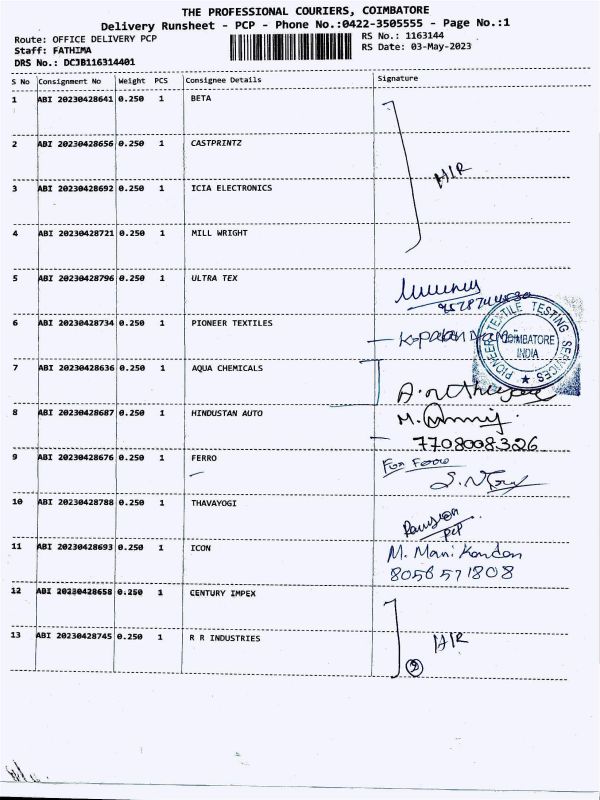 THE PROFESSIONAL COURIERS, COIMBATORE
Delivery Runsheet - PCP - Phone No.:0422-3505555 - Page No.:1
Route: OFFICE DELIVERY PCP
RS No.: 1163144
Staff: FATHIMA
RS Date: 03-May-2023
DRS No.: DCJB116314401
S No Consignment No Weight PCS Consignee Details Signature
1 ABI 20230428641 0.250 1 BETA
2 ABI 20230428656 0.250 1 CASTPRINTZ
3 ABI 20230428692 0.250 1 ICIA ELECTRONICS
4 ABI 20230428721 0.250 1 MILL WRIGHT
5 ABI 20230428796 0.250 1 ULTRA TEX
6 ABI 20230428734 0.250 1 PIONEER TEXTILES
PIONEER TEXTILE TESTING SERVICES
COIMBATORE
INDIA
7 ABI 20230428636 0.250 1 AQUA CHEMICALS
8 ABI 20230428687 0.250 1 HINDUSTAN AUTO
7708008326
9 ABI 20230428676 0.250 1 FERRO
For Ferro
10 ABI 20230428788 0.250 1 THAVAYOGI
PCP
11 ABI 20230428693 0.250 1 ICON
M. Mani Kandan
8056571808
12 ABI 20230428658 0.250 1 CENTURY IMPEX
13 ABI 20230428745 0.250 1 R R INDUSTRIES